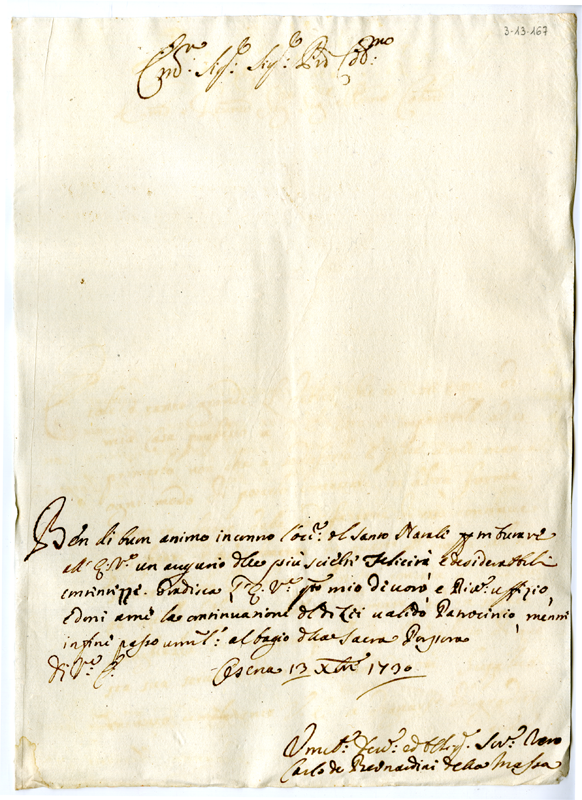 3-13-167
Em.º Sig.r Sig.r Pad.
Ben di buon animo incontro l'occ.e del santo Natale per
all' E. V.ra un augurio delle più scielte felicità e desiderabili
contentezze. Gradisca l' E. V.ra q.to mio divoto e uffizio,
e doni a me la continuazione del di Lei valido Patrocinio, mentre
in fine passo umil.e al bagio della Sacra Porpora
Di V.ra E.
Cesena 13 Xbre 1730
Umil.o Dev.o ed obblig. Ser.e Vero
Carlo de Bernardini della Massa